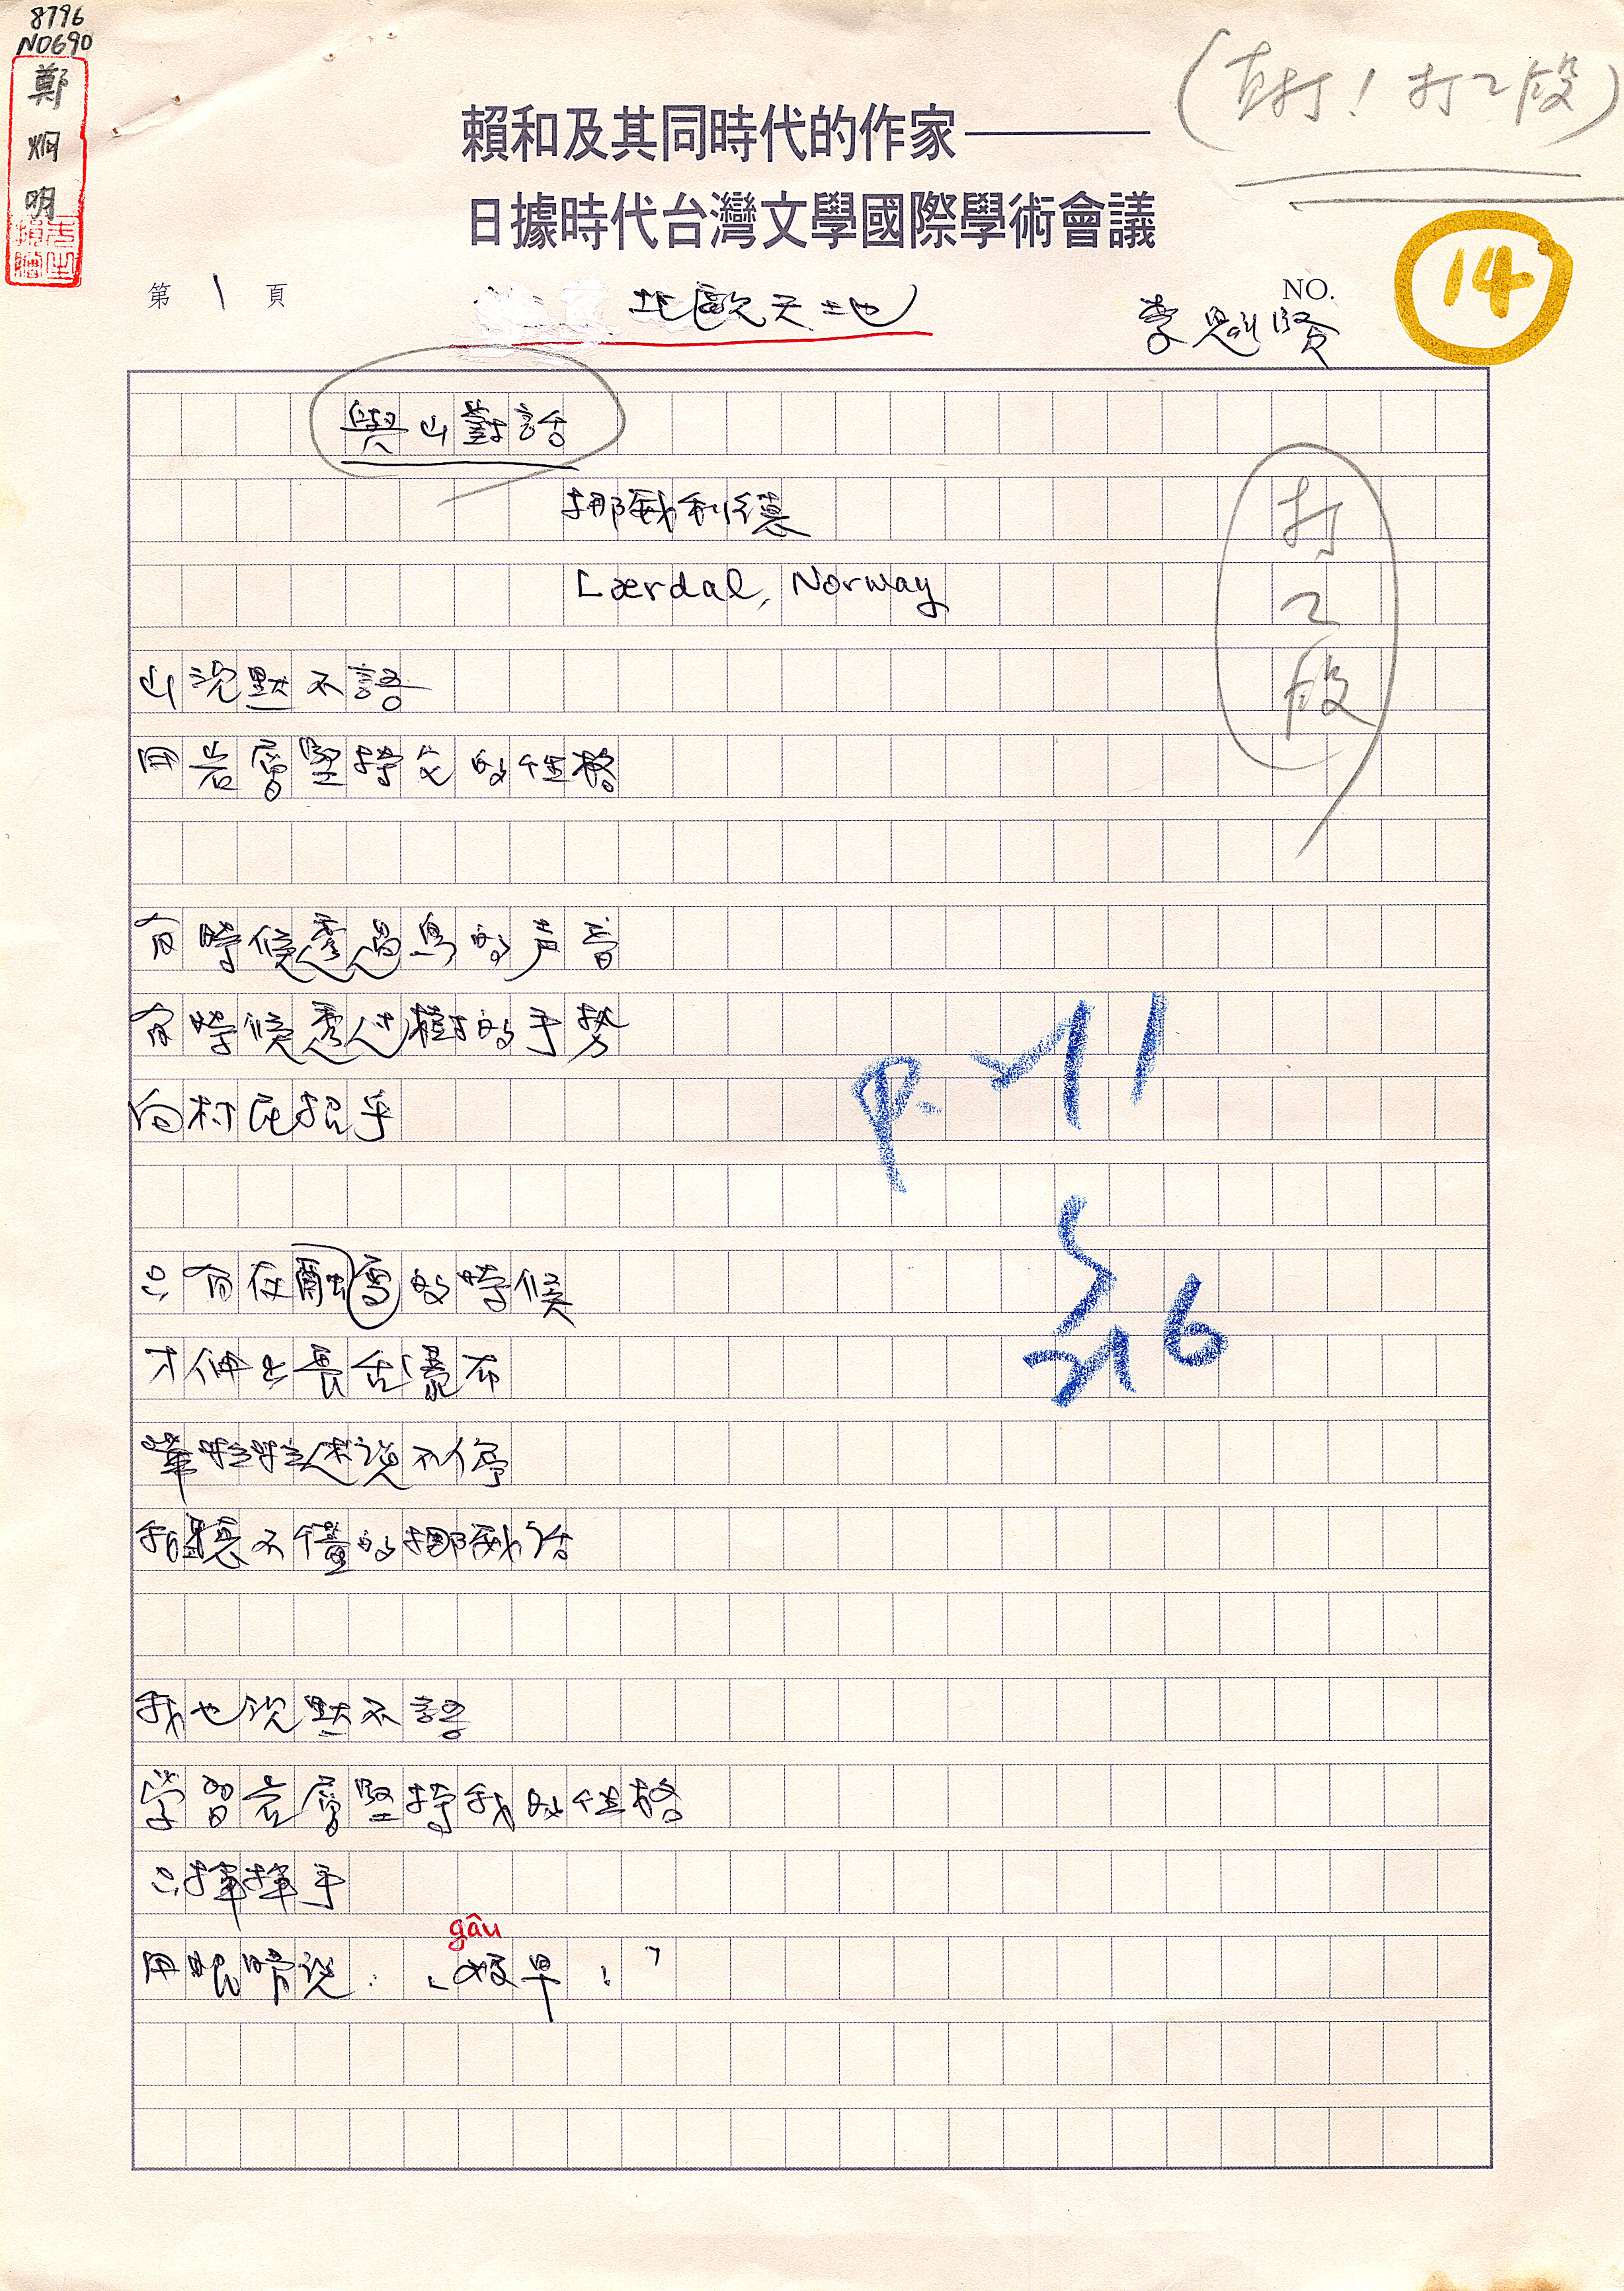 8796
NO690
鄭烱明
(直打！打2段)
賴和及其同時代的作家——
日據時代台灣文學國際學術會議
第 1 頁
北歐天地
NO.
14
李魁賢
與山對話
挪威利德
Lærdal, Norway
打2段
山沉默不語
用岩層堅持它的性格
有時候透過鳥的声音
有時候透過樹的手勢
向村民招乎
只有在融雪的時候
才伸出長舌瀑布
嘩啦啦述說不停
我聽不懂的挪威話
我也沉默不語
学習岩層堅持我的性格
只揮揮手
gâu
用眼睛說：「𠢕早！」